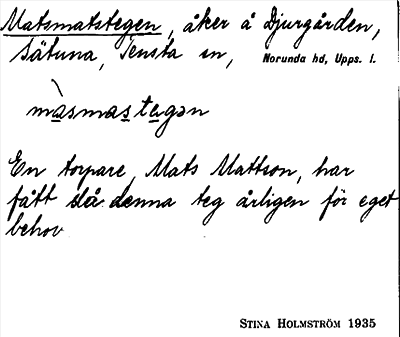 Matsmatstegen, åker å Djurgården,
Sätuna, Tensta sn, Norunda hd, Upps. l.
màsmastegən
En torpare, Mats Mattson, har
fått slå denna teg årligen för eget
behov
STINA HOLMSTRÖM 1935